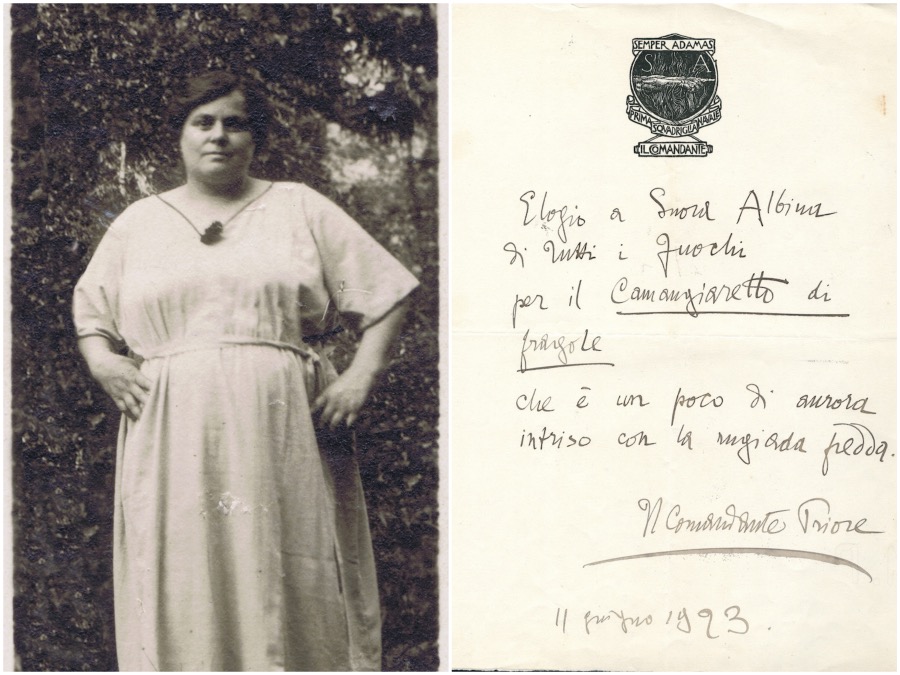 SEMPER ADAMAS
S A
PRIMA SQVADRIGLIA NAVALE
IL COMANDANTE
Elogio a Suora Albina
di Tutti i Fuochi
per il Camangiaretto di
fragole
che è un poco di aurora
intriso con la rugiada fredda.
Il Comandante Priore
11 giugno 1923.